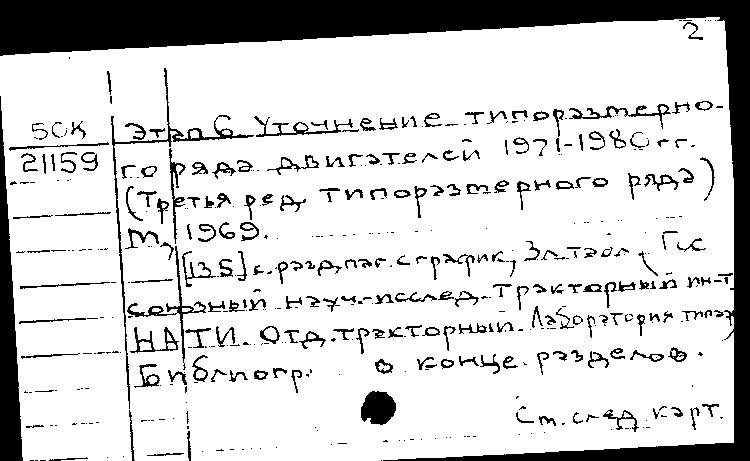 2
БСК Этап 6. Уточнение типоразмерно-
21159 го ряда двигателей 1971-1980 гг.
(Третья ред. типоразмерного ряда)
М., 1969.
[135] с. разд. паг. с график,
союзный науч.-исслед. тракторный ин-т
НАТИ. Отд. тракторный. Лаборатория
Библиогр. в конце разделов.
См. след. карт.